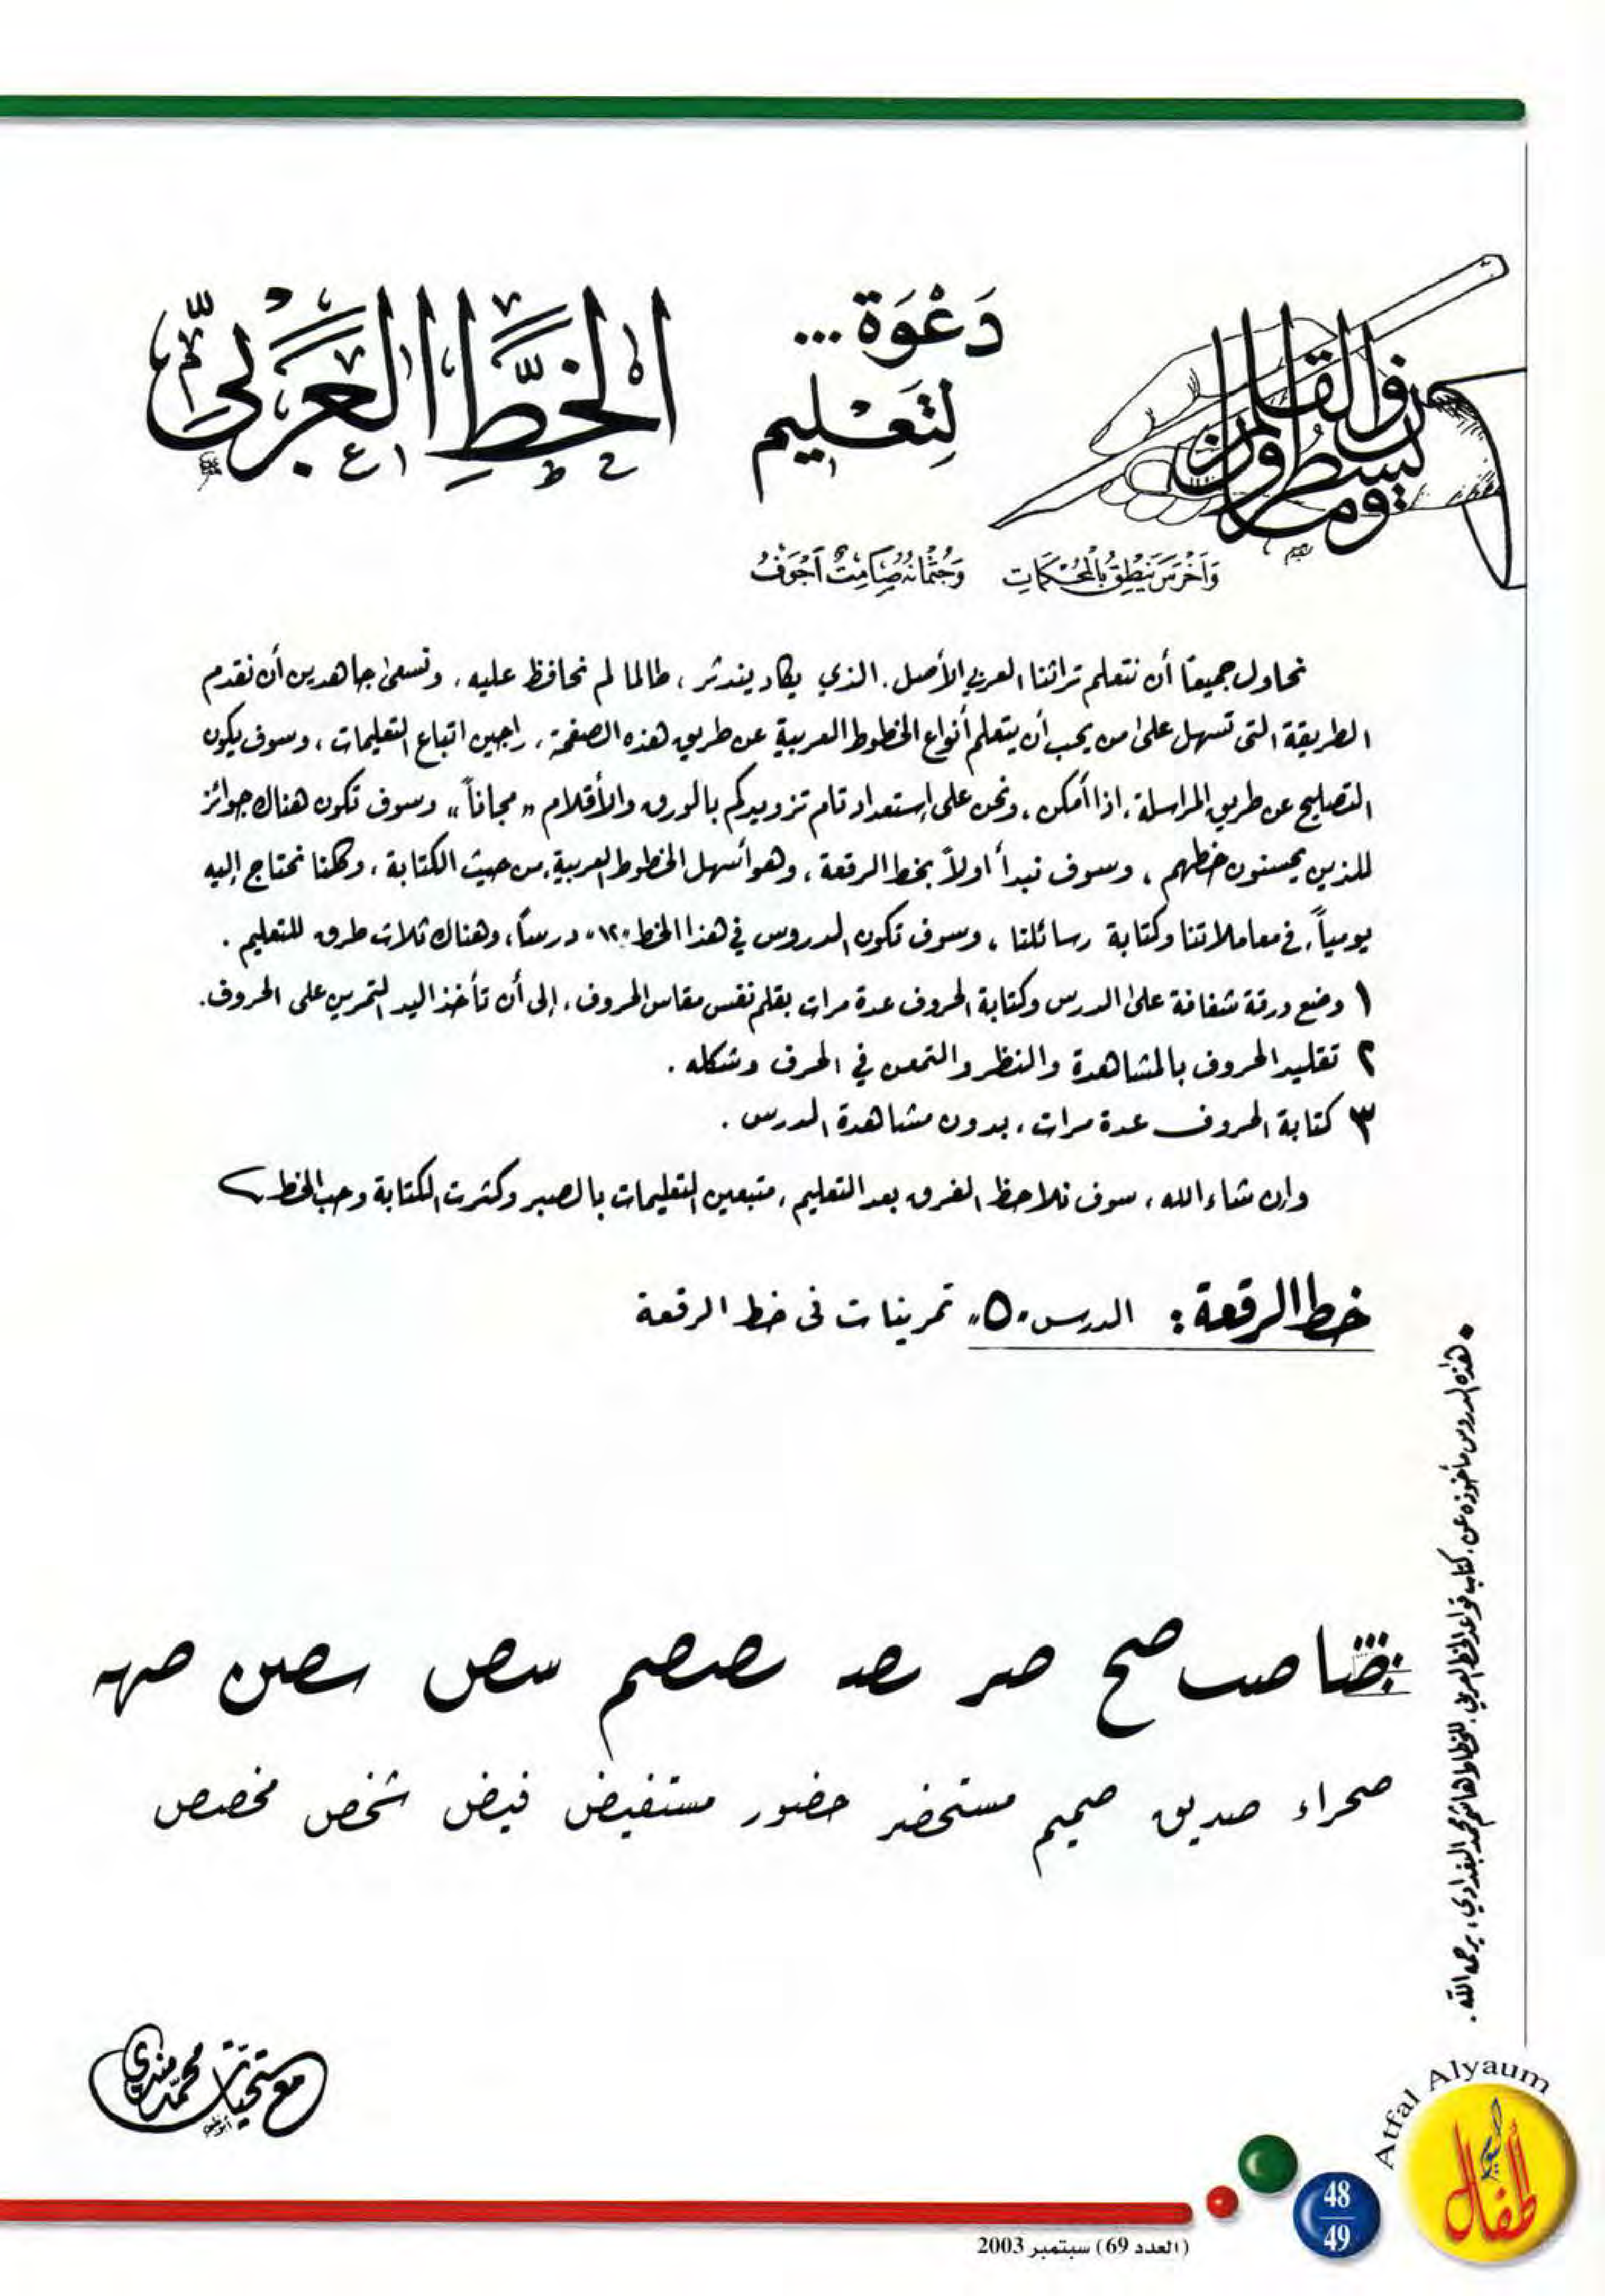 دَعْوَة...
لِتَعْليم
الخَطِّ العَرَبيّ
ن والقلم
وما يسطرون
وَأَخْرَسَ يَنْطِقُ بِالمُحْكَمَاتِ وَجُثْمَانُهُ صَامِتٌ أَجْوَفُ
نحاول جميعاً أن نتعلم تراثنا العربي الأصيل، الذي يكاد يندثر، طالما لم نحافظ عليه، ونسعى جاهدين أن نقدم
الطريقة التي تسهل على من يحب أن يتعلم أنواع الخطوط العربية عن طريق هذه الصفحة، راجين اتباع التعليمات، وسوف يكون
التصليح عن طريق المراسلة، إذا أمكن، ونحن على إستعداد تام تزويدكم بالورق والأقلام «مجاناً» وسوف تكون هناك جوائز
للذين يحسنون خطهم، وسوف نبدأ اولاً بخط الرقعة، وهو أسهل الخطوط العربية، من حيث الكتابة، وكلنا نحتاج إليه
يومياً، في معاملاتنا وكتابة رسائلنا، وسوف تكون الدروس في هذا الخط «١٢» درساً، وهناك ثلاث طرق للتعليم.
١ وضع ورقة شفافة على الدرس وكتابة الحروف عدة مرات بقلم نفس مقاس الحروف، إلى أن تأخذ اليد التمرين على الحروف.
٢ تقليد الحروف بالمشاهدة والنظر والتمعن في الحرف وشكله.
٣ كتابة الحروف عدة مرات، بدون مشاهدة الدرس.
وإن شاء الله، سوف نلاحظ الفرق بعد التعليم، متبعين التعليمات بالصبر وكثرت الكتابة وحب الخط
خط الرقعة: الدرس «٥» تمرينات في خط الرقعة
صا صب صح صر صد صصم سص سصن صهه
صحراء صديق صميم مستحضر حضور مستفيض فيض شخص مخصص
• هذه الدروس مأخوذه عن، كتاب قواعد الخط العربي، للخطاط هاشم محمد البغدادي، يرحمه الله.
مع تحيات محمد مندي
أبوظبي
Atfal Alyaum
أطفال اليوم
48
49
(العدد 69) سبتمبر 2003